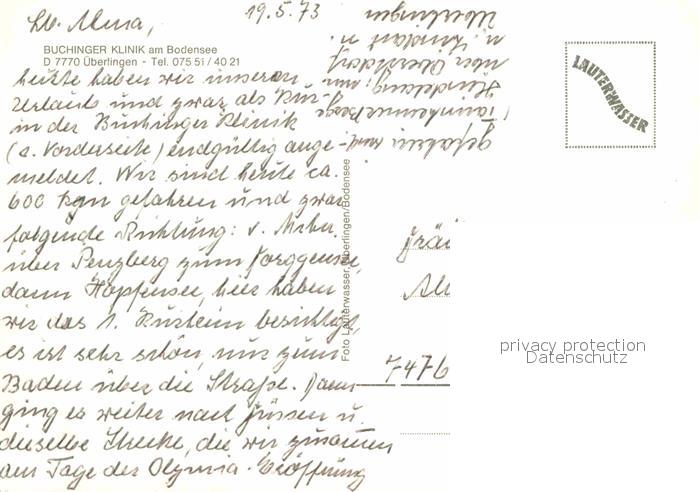 Lb. Alma,
19.5.73
BUCHINGER KLINIK am Bodensee
D 7770 Überlingen - Tel. 075 51 / 40 21
heute haben wir unseren
Urlaub und zwar als Kur
in der Buchinger Klinik
(s. Vorderseite) endgültig ange-
meldet. Wir sind heute ca.
600 kgm gefahren und zwar
folgende Richtung: v. Mchn.
über Penzberg zum Forggensee,
dann Hopfensee, hier haben
wir das 1. Kurheim besichtigt,
es ist sehr schön, nur zum
Baden über die Straße. Dann
ging es weiter nach Füssen u.
dieselbe Strecke, die wir zusammen
am Tage der Olympia-Eröffnung
gefahren sind
Hindelang
über Oberstdorf
n. Lindau u.
Überlingen
Foto Lauterwasser, Überlingen/Bodensee
LAUTERWASSER
7476
privacy protection
Datenschutz